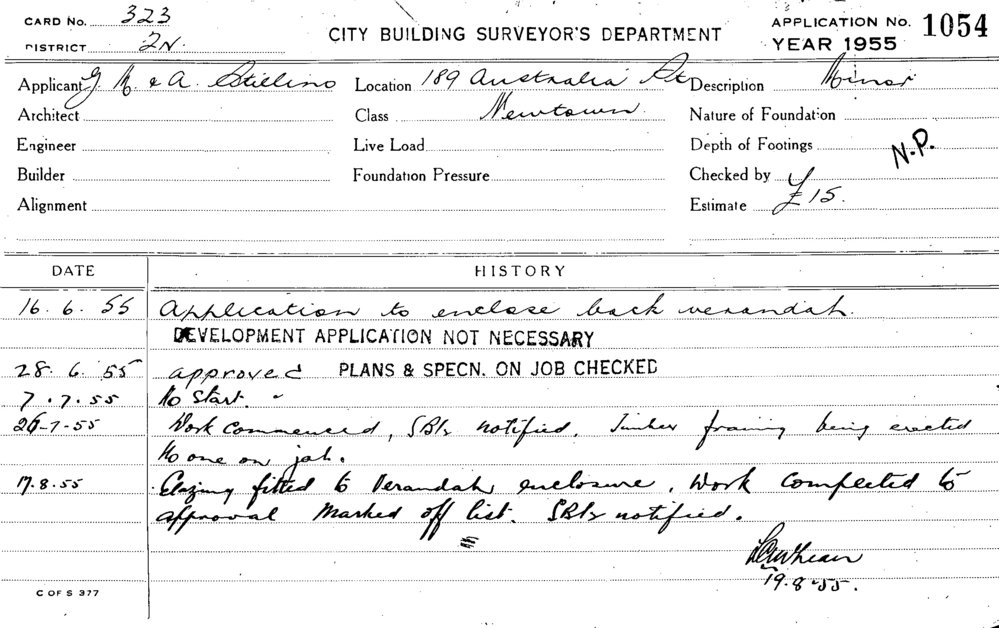 CARD No. 323
DISTRICT 2N.
CITY BUILDING SURVEYOR'S DEPARTMENT
APPLICATION No. 1054
YEAR 1955
Applicant G. M. & A. Stillino Location 189 Australia St Description Minor
Architect Class Newtown Nature of Foundation
Engineer Live Load Depth of Footings N.P.
Builder Foundation Pressure Checked by
Alignment Estimate £15.
DATE HISTORY
16. 6. 55 Application to enclose back verandah.
DEVELOPMENT APPLICATION NOT NECESSARY
28. 6. 55 approved PLANS & SPECN. ON JOB CHECKED
7. 7. 55 No start.
26-7-55 Work commenced, notified. Timber framing being erected
No one on job.
17. 8. 55 Glazing fitted to Verandah enclosure. Work completed to
approval Marked off list. notified.
19. 8. 55.
C OF S 377